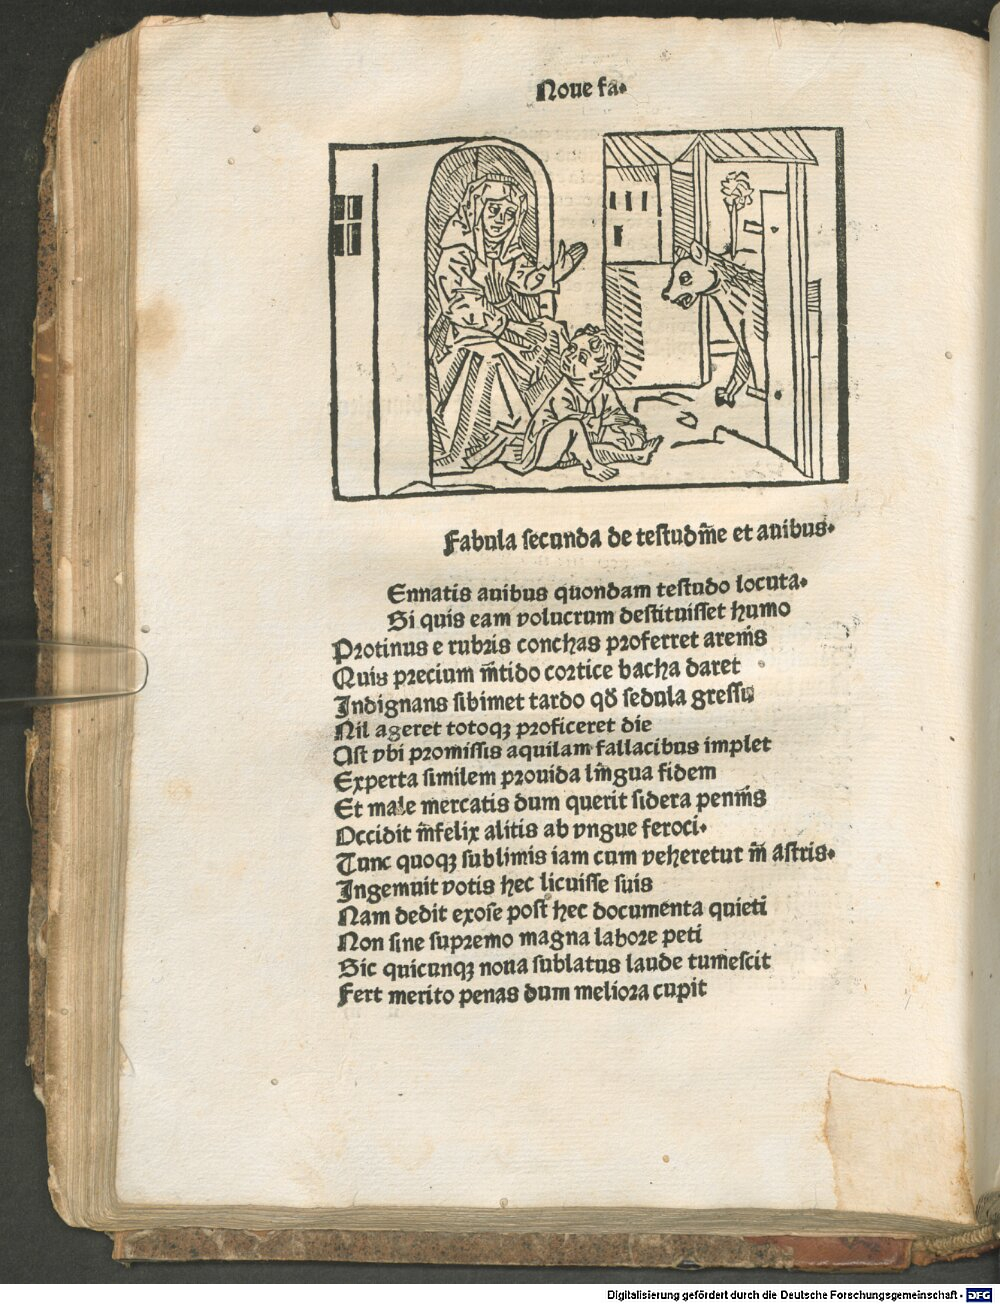 Noue fa.
Fabula secunda de testudine et auibus.
Ennatis auibus quondam testudo locuta.
Si quis eam volucrum destituisset humo
Protinus e rubris conchas proferret arenis
Quis precium nitido cortice bacha daret
Indignans sibimet tardo qđ sedula gressu
Nil ageret totoqꝫ proficeret die
Ast vbi promissis aquilam fallacibus implet
Experta similem prouida lingua fidem
Et male mercatis dum querit sidera pennis
Occidit infelix alitis ab vngue feroci.
Tunc quoqꝫ sublimis iam cum veheretur in astris.
Ingemuit votis hec licuisse suis
Nam dedit exose post hec documenta quieti
Non sine supremo magna labore peti
Sic quicunqꝫ noua sublatus laude tumescit
Fert merito penas dum meliora cupit
Digitalisierung gefördert durch die Deutsche Forschungsgemeinschaft - DFG